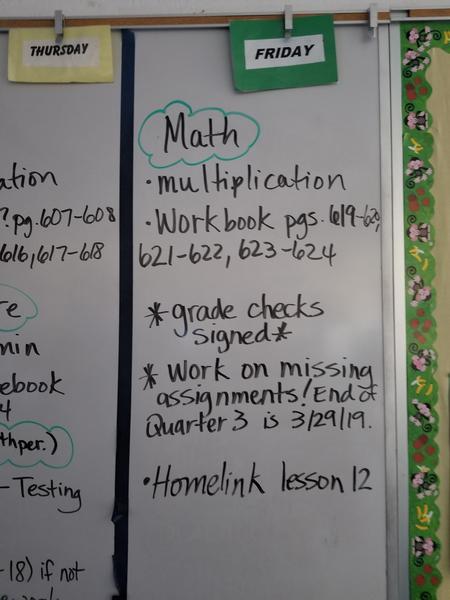 THURSDAY
ation
?.pg.607-608
616,617-618
re
min
ebook
4
thper.)
-Testing
-18) if not
FRIDAY
Math
·multiplication
·Workbook pgs. 619-620,
621-622, 623-624
*grade checks
signed*
* Work on missing
assignments! End of
Quarter 3 is 3/29/19.
·Homelink lesson 12